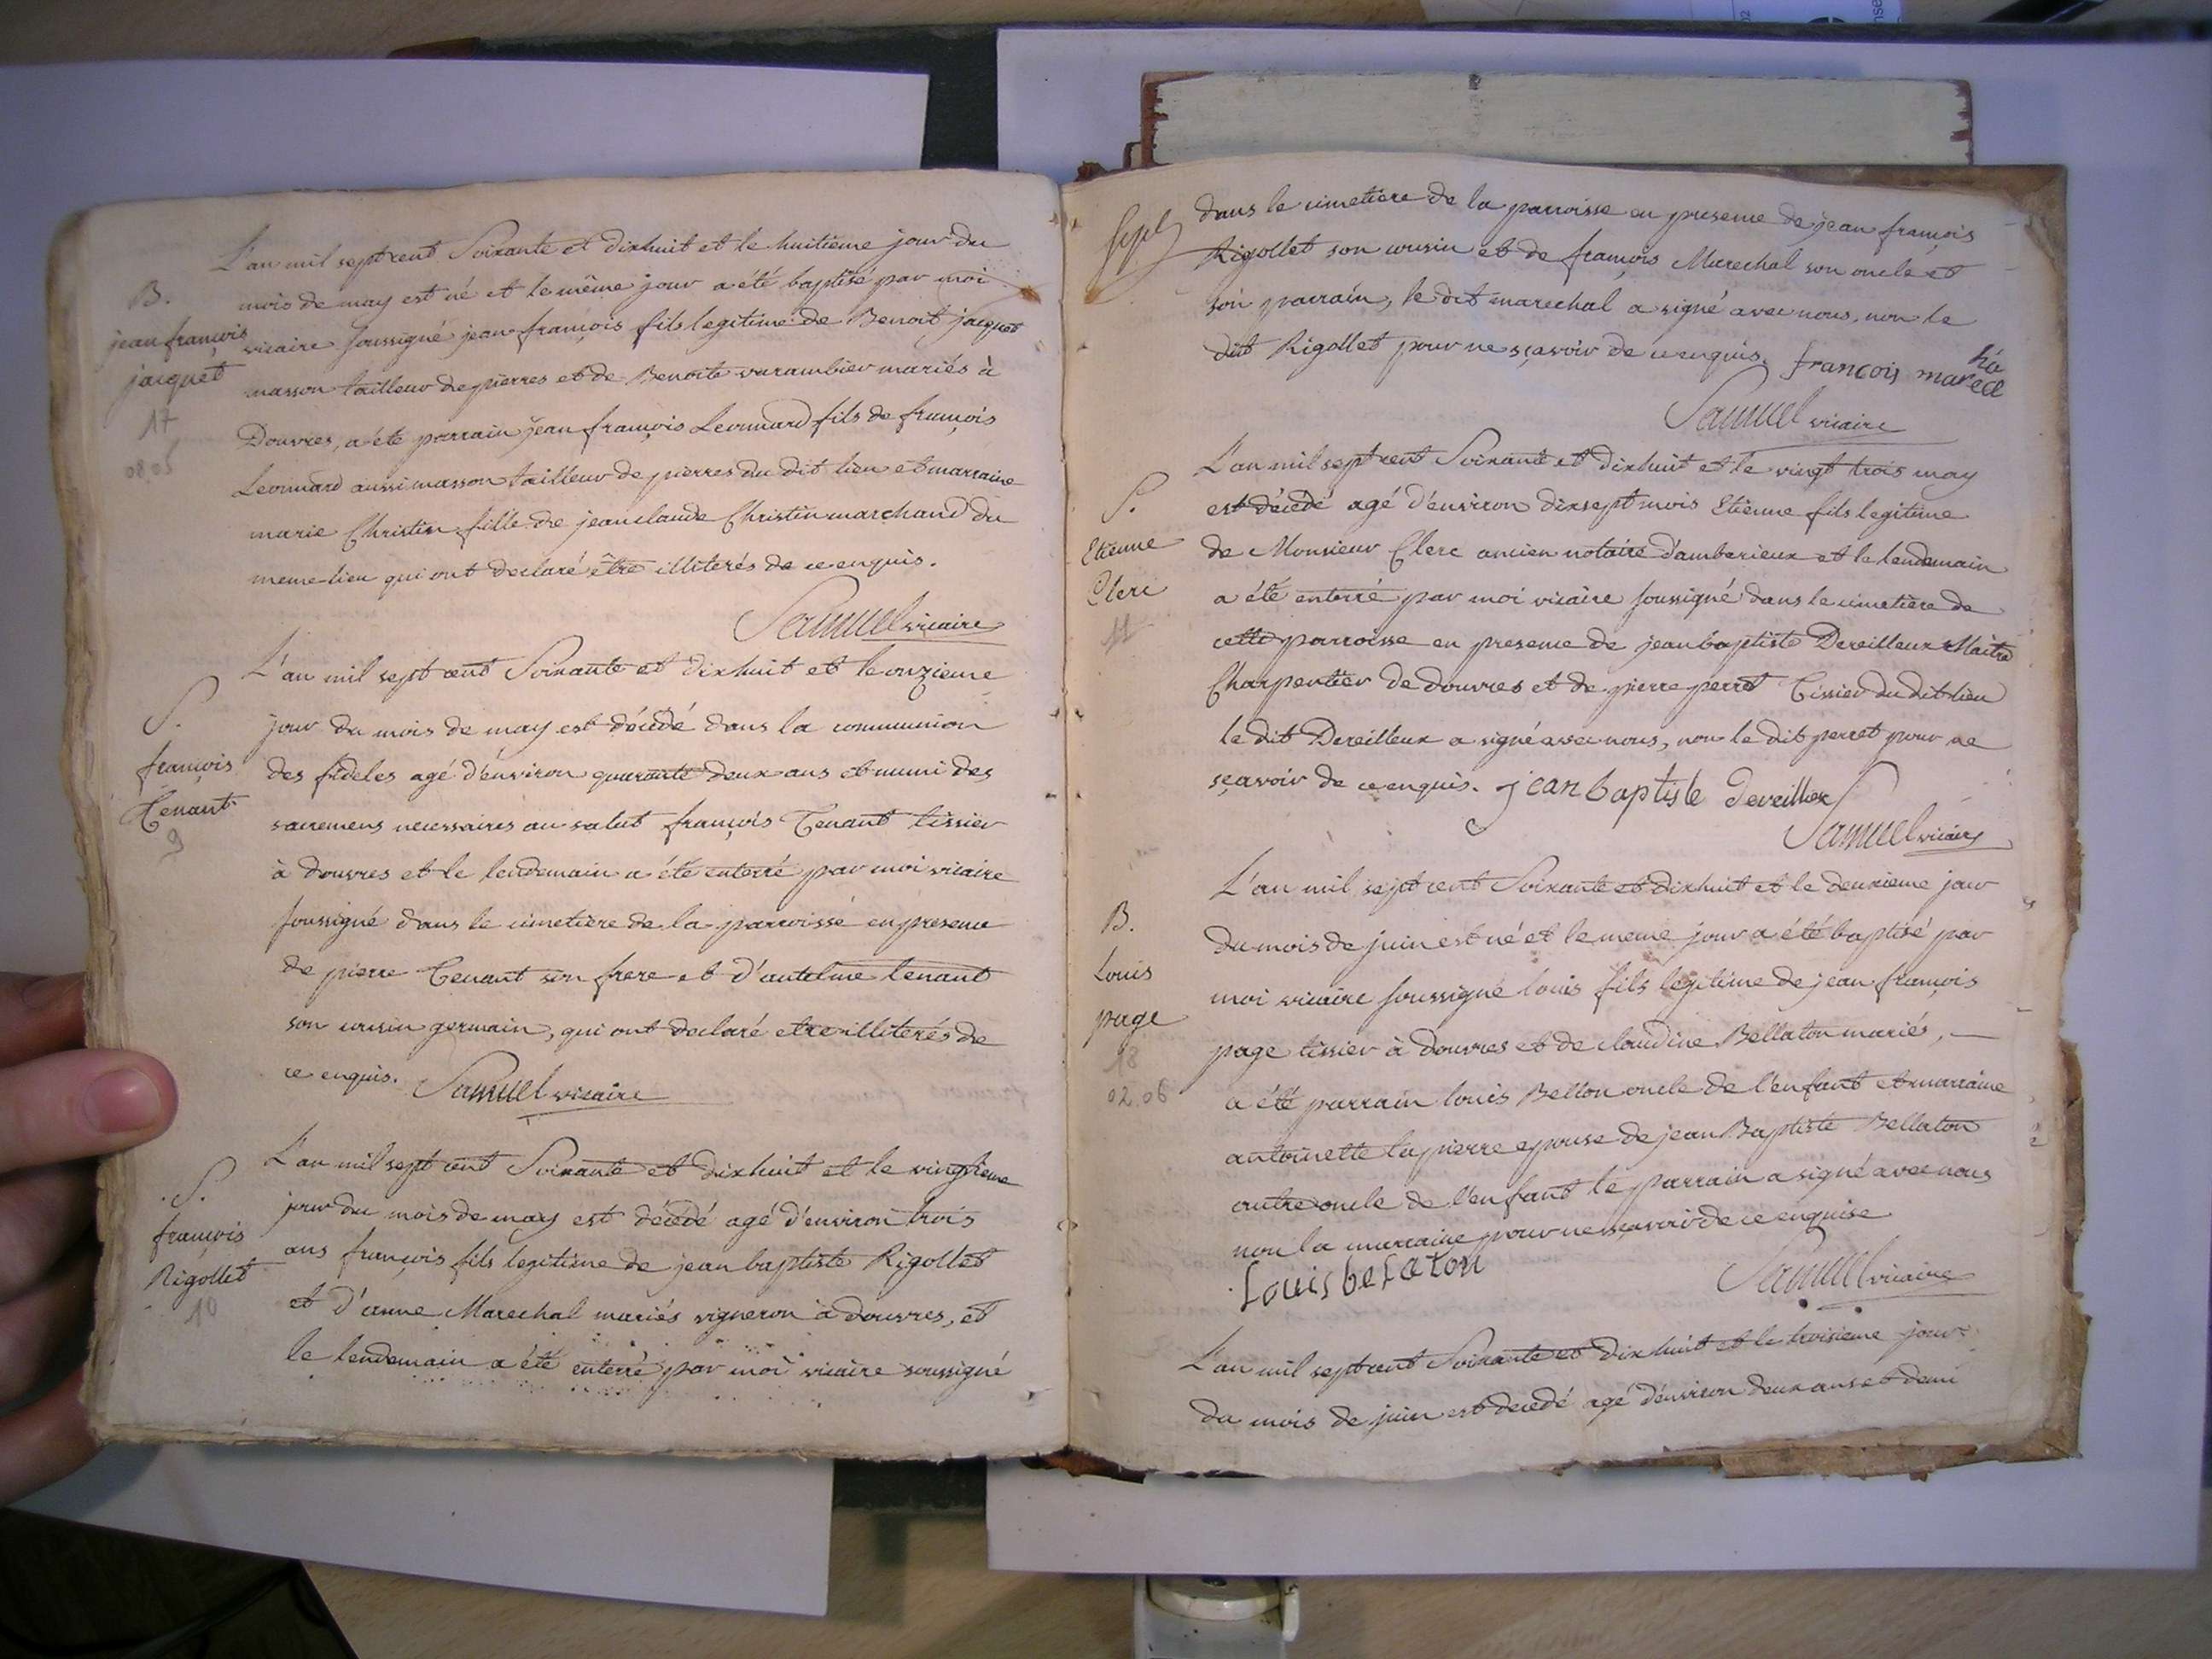 B.
jean françois
jacquet
17
08.05
L'an mil sept cent Soixante et dixhuit et le huitieme jour du
mois de may est né et le même jour a été baptisé par moi
vicaire soussigné jean françois fils legitime de Benoit jacquet
masson tailleur de pierres et de Benoite varambier mariés à
Douvres, a été parrain jean françois Leonnard fils de françois
Leonnard aussi masson tailleur de pierres du dit lieu et marraine
marie Christin fille de jean claude Christin marchand du
meme lieu qui ont declaré être illiterés de ce enquis.
Samuel vicaire
S.
françois
Tenant
9
L'an mil sept cent Soixante et dixhuit et le onzieme
jour du mois de may est décédé dans la communion
des fideles agé d'environ quarante deux ans et muni des
sacremens necessaires au salut françois Tenant tissier
à douvres et le lendemain a été enterré par moi vicaire
soussigné dans le cimetière de la parroisse en presence
de pierre Tenant son frere et d'antelme tenant
son cousin germain, qui ont declaré etre illiterés de
ce enquis. Samuel vicaire
S.
françois
Rigollet
10
L'an mil sept cent Soixante et dixhuit et le vingtieme
jour du mois de may est décédé agé d'environ trois
ans françois fils legitime de jean baptiste Rigollet
et d'anne Marechal mariés vigneron à douvres, et
le lendemain a été enterré par moi vicaire soussigné
dans le cimetière de la parroisse en presence de jean françois
Rigollet son cousin et de françois Marechal son oncle et
son parrain, le dit marechal a signé avec nous, non le
dit Rigollet pour ne sçavoir de ce enquis. françois
Samuel vicaire
S.
Etienne
Clerc
11
L'an mil sept cent Soixante et dixhuit et le vingt trois may
est décédé agé d'environ dixsept mois Etienne fils legitime
de Monsieur Clerc ancien notaire d'amberieux et le lendemain
a été enterré par moi vicaire soussigné dans le cimetière de
cette parroisse en presence de jean baptiste Dereilleux Maitre
Charpentier de douvres et de pierre perret Tissier du dit lieu
le dit Dereilleux a signé avec nous, non le dit perret pour ne
sçavoir de ce enquis. jean baptiste dereillex
Samuel vicaire
B.
Louis
page
18
02.06
L'an mil sept cent Soixante et dixhuit et le deuxieme jour
du mois de juin est né et le meme jour a été baptisé par
moi vicaire soussigné louis fils legitime de jean françois
page tissier à douvres et de claudine Bellaton mariés,
a été parrain louis Bellon oncle de l'enfant et marraine
antoinette lapierre epouse de jean Baptiste Bellaton
autre oncle de l'enfant le parrain a signé avec nous
non la marraine pour ne sçavoir de ce enquise
Louis belaton
Samuel vicaire
L'an mil sept cent Soixante et dix huit et le troisieme jour
du mois de juin est décédé agé d'environ deux ans et demi